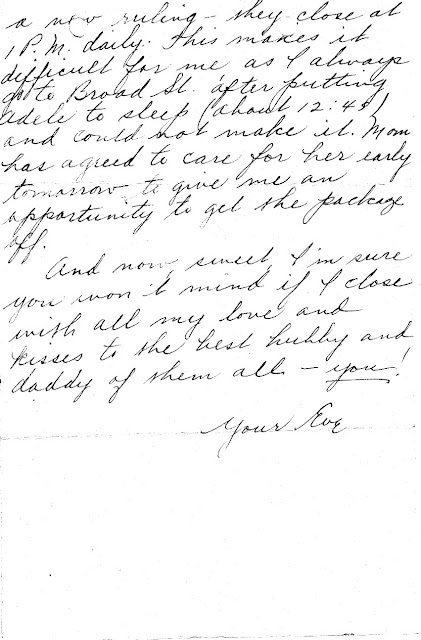 a new ruling - they close at
1 P.M. daily. This makes it
difficult for me as I always
go to Broad St. after putting
Adele to sleep (about 12:45)
and could not make it. Mom
has agreed to care for her early
tomorrow to give me an
opportunity to get the package
off.
And now, sweet, I'm sure
you won't mind if I close
with all my love and
kisses to the best hubby and
daddy of them all - you!
Your Eve